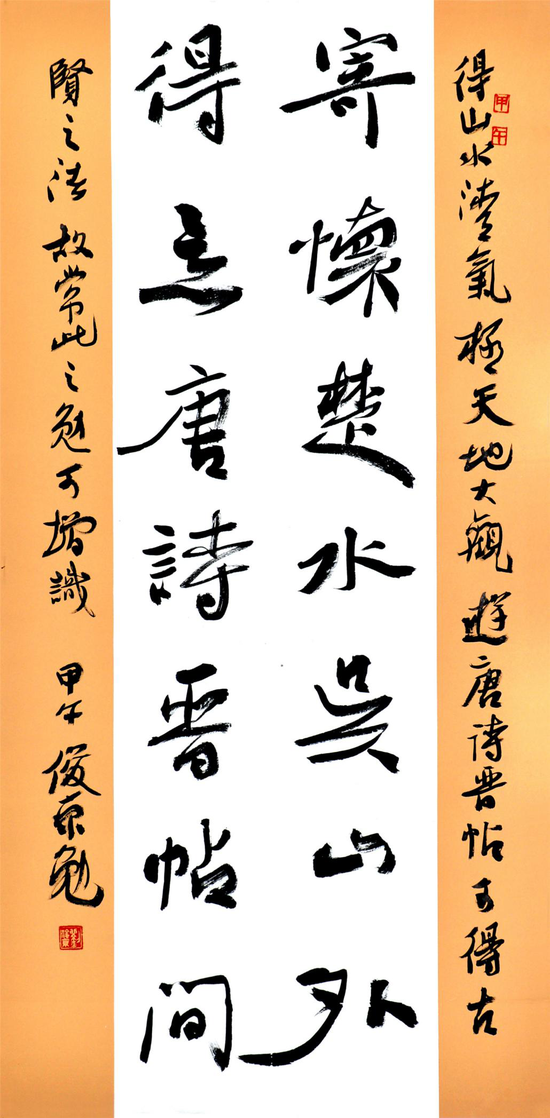 甲午
得山水清氣極天地大觀遊唐詩晉帖可得古
寄懷楚水吳山外
得意唐詩晉帖間
賢之法故常此之勉可增識 甲午俊京勉